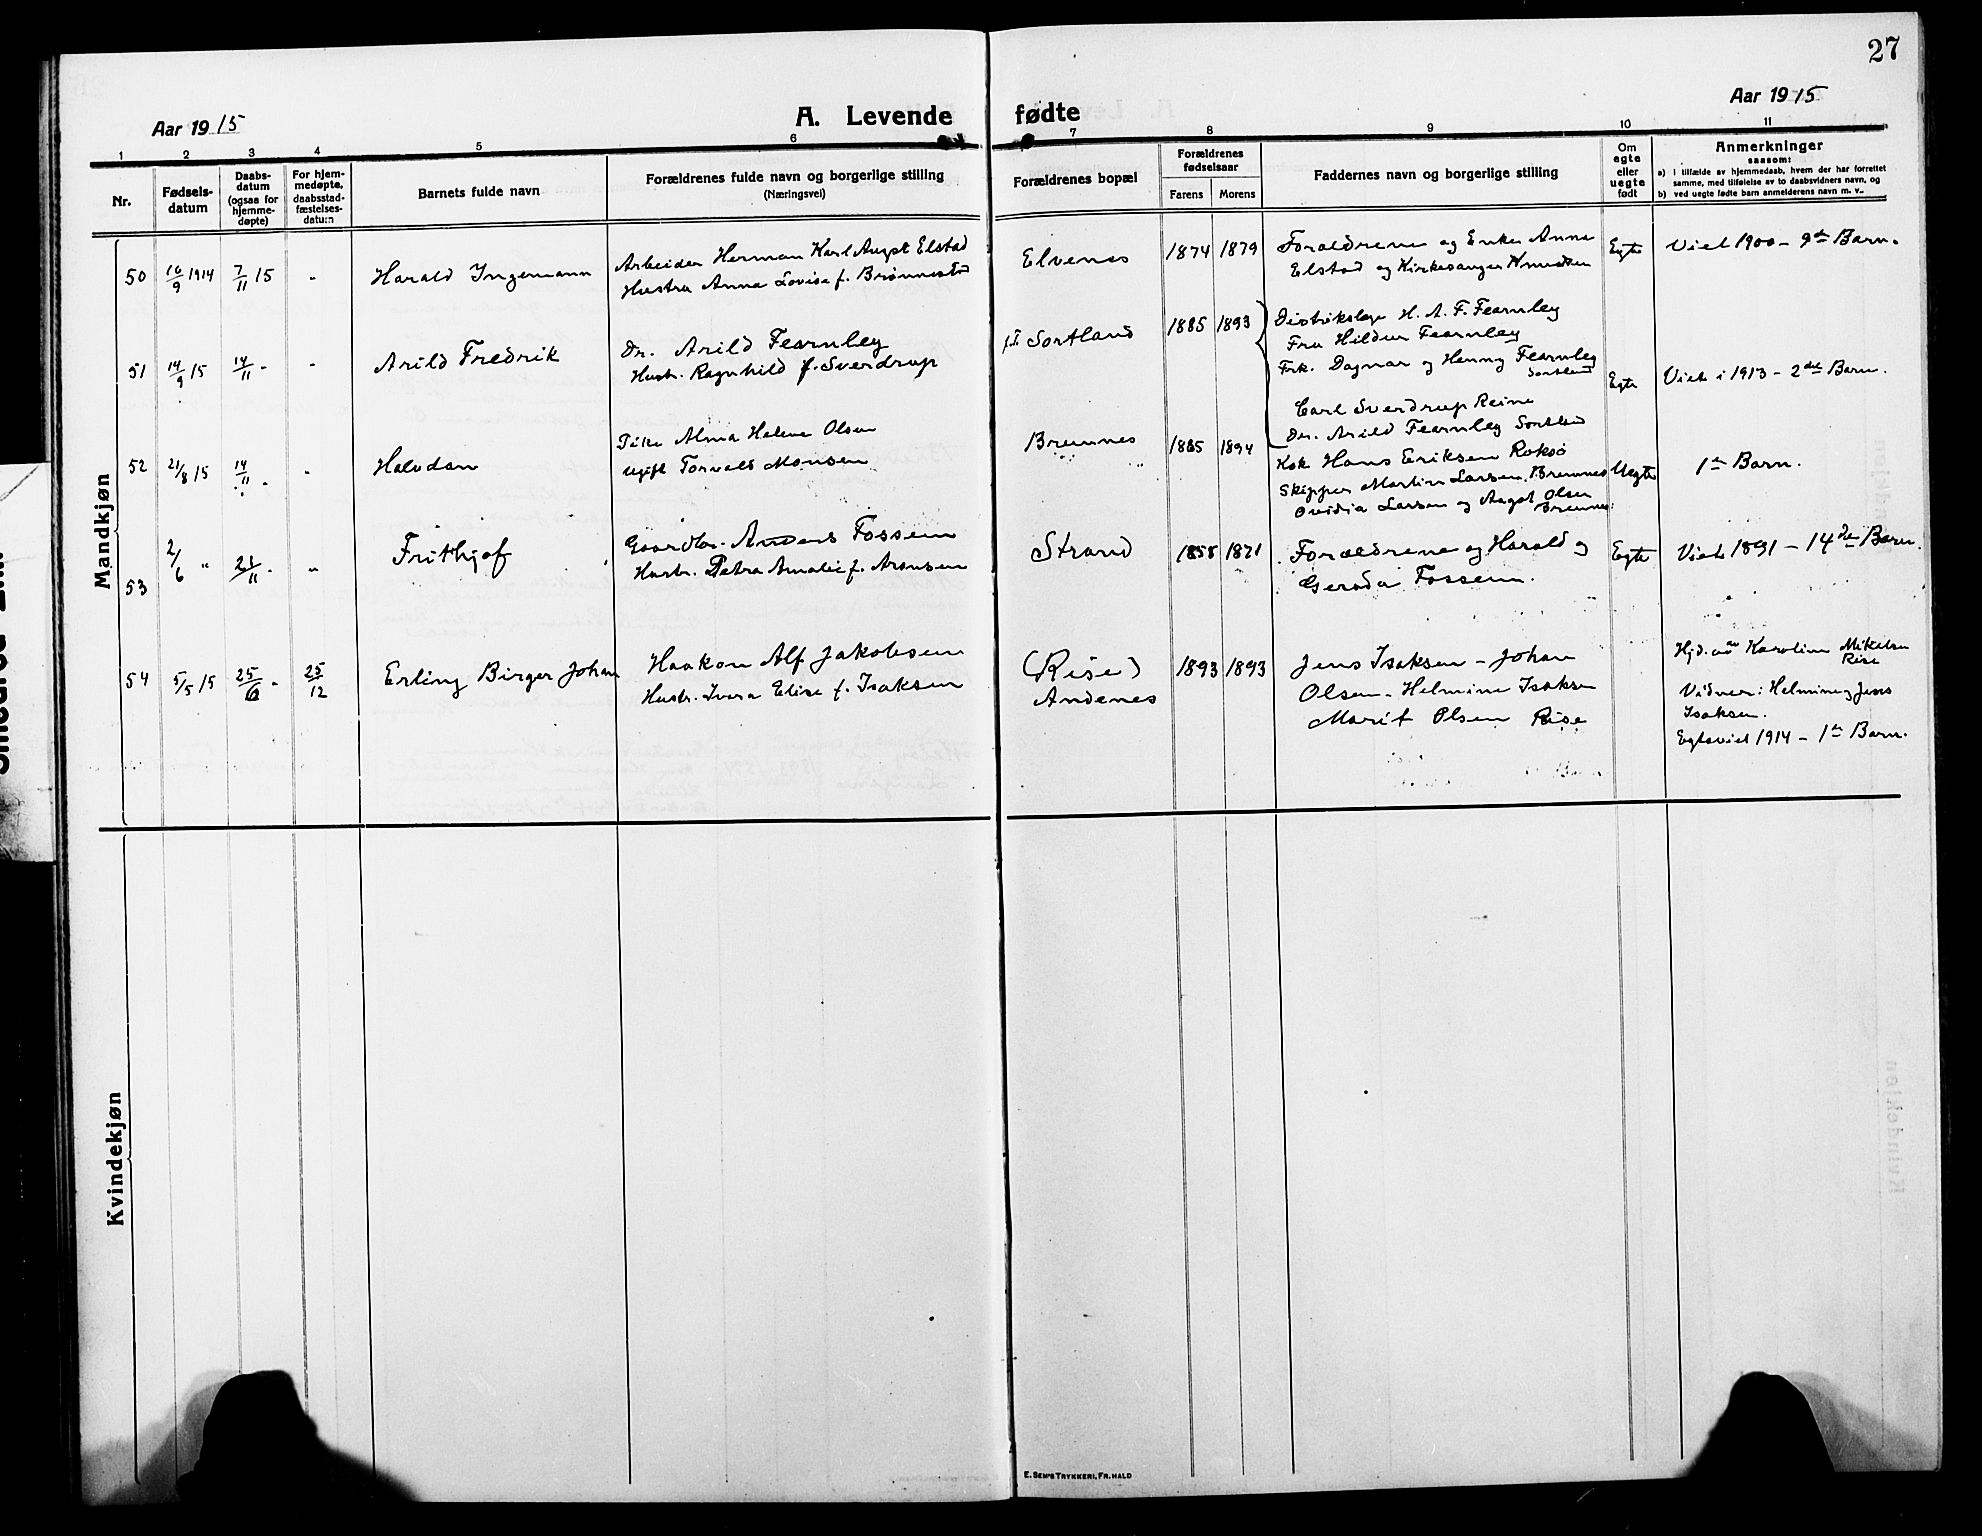 27
Aar 1915
A. Levende fødte
Aar 1915
1 2 3 4 5 6 7 8 9 10 11
Nr.
Fødsels-
datum
Daabs-
datum
(ogsaa for
hjemme-
døpte)
For hjem-
medøpte,
daabsstad-
fæstelses-
datum
Barnets fulde navn
Forældrenes fulde navn og borgerlige stilling
(Næringsvei)
Forældrenes bopæl
Forældrenes
fødselsaar
Farens Morens
Faddernes navn og borgerlige stilling
Om
egte
eller
uegte
født
Anmerkninger
saasom:
a) i tilfælde av hjemmedaab, hvem der har forrettet
samme, med tilføielse av to daabsvidners navn, og
b) ved uegte fødte barn anmelderens navn m. v.
Mandkjøn
50 16/9 1914 7/11 15 - Harald Ingemann
Arbeider Herman Karl August Elstad
Hustru Anna Lovise f. Brønnestad
Elvenes 1874 1879
Forældrene og Enke Anna
Elstad og Kirkesanger Knudsen
Egte
Viet 1900 - 9de Barn.
51 14/9 15 14/11 - - Arild Fredrik
Dr. Arild Fearnley
Hustr. Ragnhild f. Sverdrup
p.t. Sortland 1885 1893
Distriktslæge H. A. F. Fearnley
Fru Hildur Fearnley
Frk. Dagmar og Henny Fearnley
Sortland
Carl Sverdrup Reine
Dr. Arild Fearnley Sortland
Egte
Viet i 1913 - 2det Barn.
52 21/8 15 14/11 - - Halvdan
Pike Alma Helene Olsen
Ugift Torvald Monsen
Bremnes
" "
1885 1894
Kok Hans Eriksen Roksø
Skipper Martin Larsen, Bremnes
Ovidia Larsen og Aagot Olsen
Bremnes.
Uegte
1te Barn.
53 2/6 " 21/11 - " Frithjof
Gaardbr. Anders Fossem
Hustr. Petra Amalie f. Aronsen
Strand 1858 1871
Forældrene og Harald og
Gerda Fossem.
Egte
Viet 1891 - 14de Barn.
54 5/5 15 25/6 - 25/12 Erling Birger Johan
Haakon Alf Jakobsen
Hustr. Ivara Elise f. Isaksen
(Rise)
Andenes
1893 1893
Jens Isaksen - Johan
Olsen - Helmine Isaksen
Marit Olsen Rise
Hjd. av Karoline Mikelsen
Rise
Vidner: Helmine og Jens
Isaksen.
Egteviet 1914 - 1te Barn.
Kvindekjøn
E. SEM'S TRYKKERI, FR. HALD